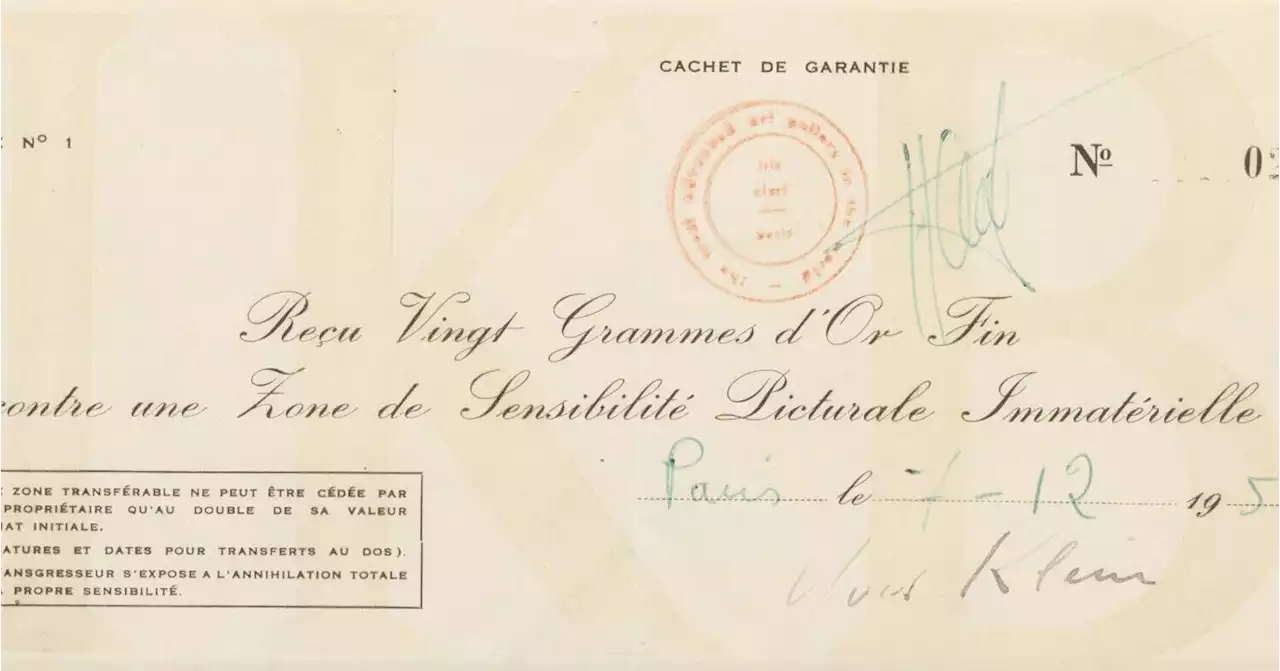 CACHET DE GARANTIE
Nº 1
the most advanced art gallery in the world –
iris
clert
paris
Nº 02
Reçu Vingt Grammes d'Or Fin
contre une Zone de Sensibilité Picturale Immatérielle
Paris le 7-12 195
Yves Klein
ZONE TRANSFÉRABLE NE PEUT ÊTRE CÉDÉE PAR
PROPRIÉTAIRE QU'AU DOUBLE DE SA VALEUR
AT INITIALE.
ATURES ET DATES POUR TRANSFERTS AU DOS).
ANSGRESSEUR S'EXPOSE A L'ANNIHILATION TOTALE
PROPRE SENSIBILITÉ.